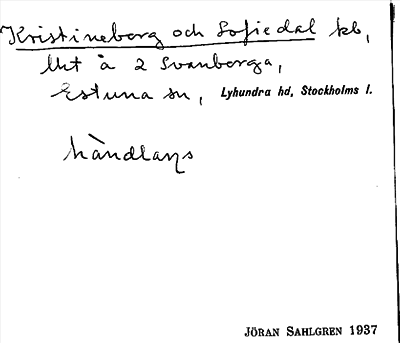 Kristineberg och Sofiedal kb,
lht å 2 Svanberga,
Estuna sn, Lyhundra hd, Stockholms l.
håndlags
JÖRAN SAHLGREN 1937